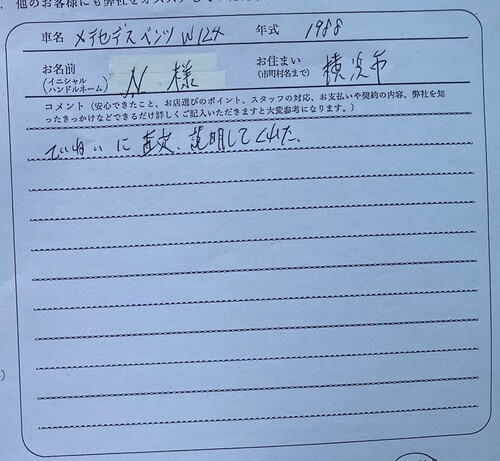 他のお客様にも弊社を
車名 メテセデスベンツ W124 年式 1988
お名前
(イニシャル
ハンドルネーム)
N 様
お住まい
(市町村名まで)
横浜市
コメント(安心できたこと、お店選びのポイント、スタッフの対応、お支払いや契約の内容、弊社を知
ったきっかけなどできるだけ詳しくご記入いただきますと大変参考になります。)
ていねいに査定、説明してくれた。